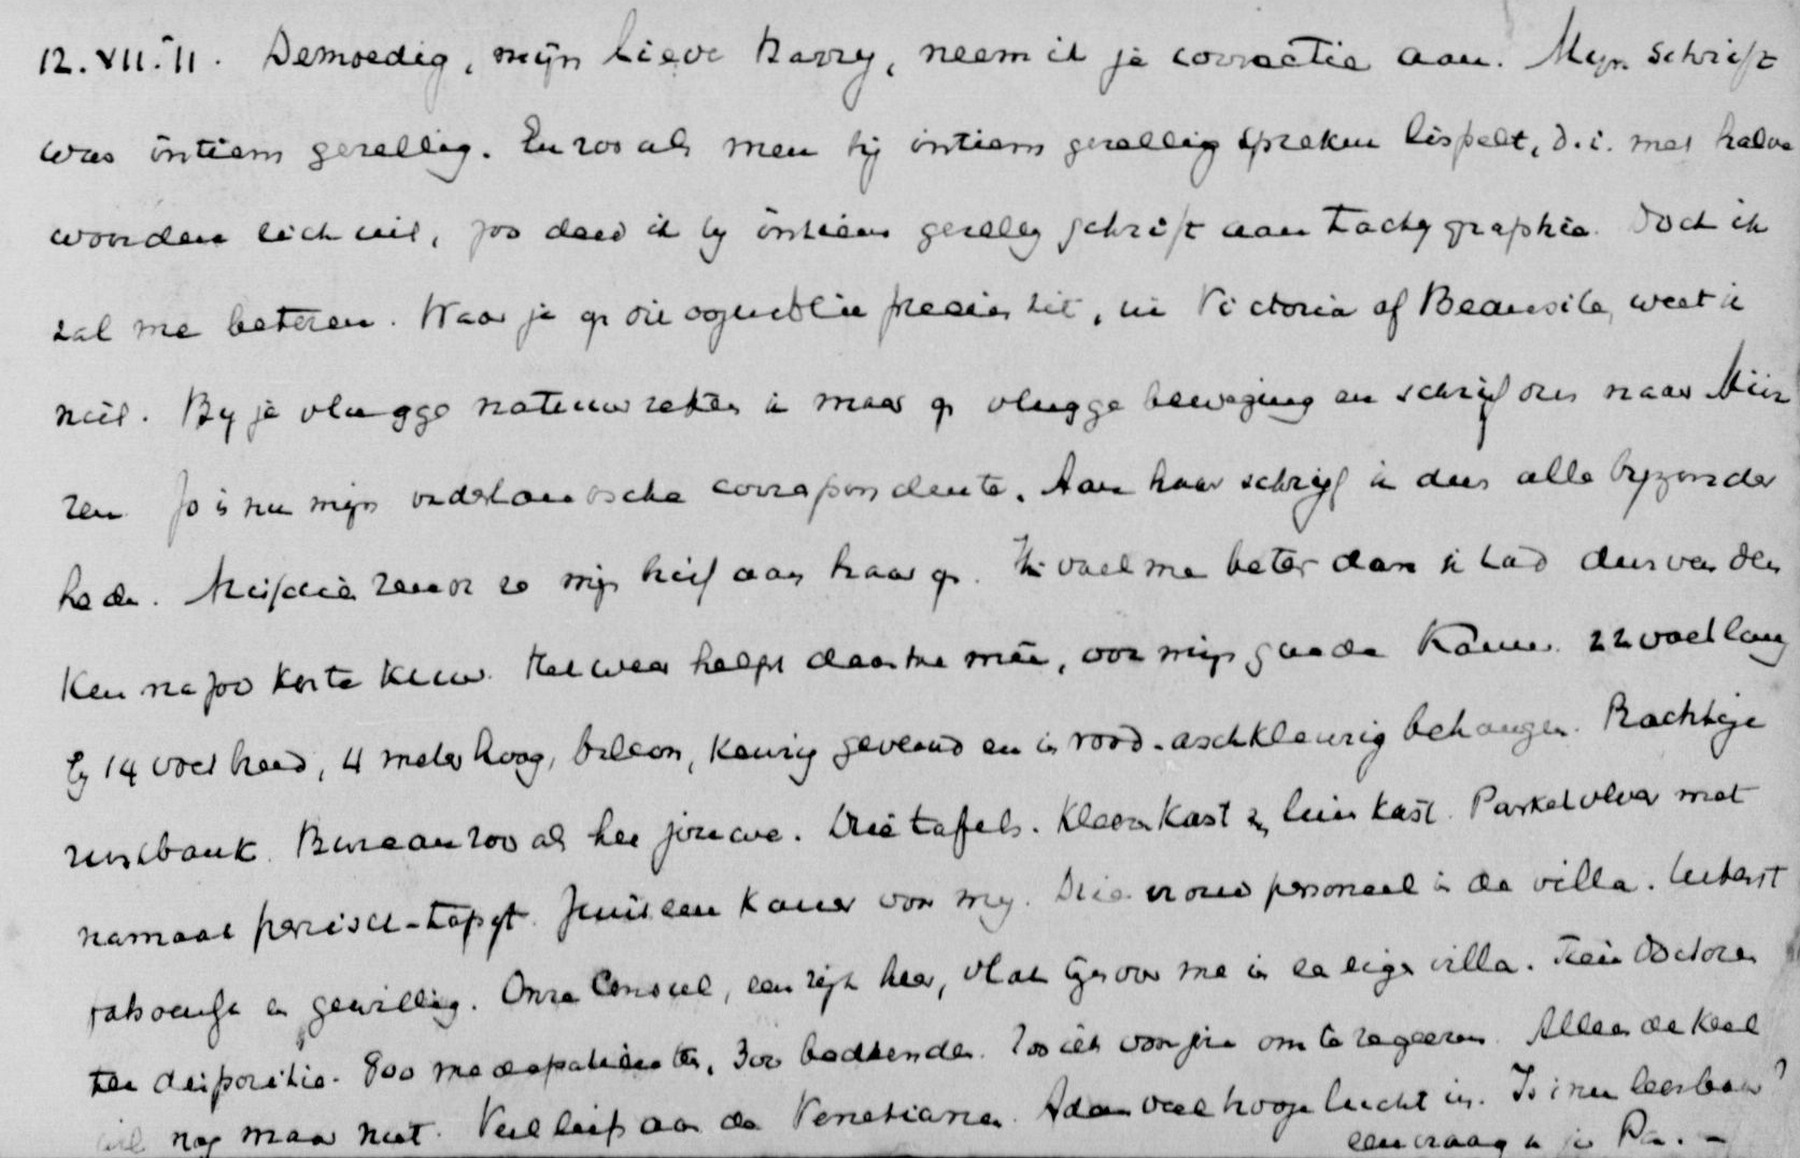 12.VII.11. Demoedig, mijn lieve Harry, neem ik je correctie aan. Mijn schrift
was intiem gezellig. En zooals men bij intiem gezellig spreken lispelt, d.i. met halve
woorden zich uit, zoo deed ik bij intiem gezellig schrift aan tachygraphie. Doch ik
zal me beteren. Waar je op dit oogenblik precies zit, in Victoria of Beausite, weet ik
niet. By je vlugge natuur reken ik maar op vlugge beweging en schrijf dus naar
Jo is nu mijn vaderlandsche correspondente. Aan haar schrijf ik dus alle byzonder
heden. zend ze mijn brief aan haar op. Ik voel me beter dan ik had durven den
ken na zoo korte kuur. Het weer helpt daartoe mee, ook mijn goede kamer. 22 voet lang
by 14 voet breed, 4 meter hoog, balcon, keurig geverfd en in rood-aschkleurig behangen. Prachtige
rustbank. Bureau zooals het jouwe. Drie tafels. Kleerkast en linnenkast. Parketvloer met
namaak perzisch-tapijt. Juist een kamer voor my. Drie vrouw personeel in de villa. Uiterst
fatsoenlijk en gewillig. Onze Consul, een rijk heer, vlak tegenover me in een eigen villa. Tien Doctoren
ter dispositie. 800 medepatienten, 300 badkinder. Zoo iets voor jou om te regeeren. Alleen de keel
wil nog maar niet. Veel liefs aan de Venetianen. Adem veel hooge lucht in. Is 't nu leesbaar?
een vraag van je Pa. -